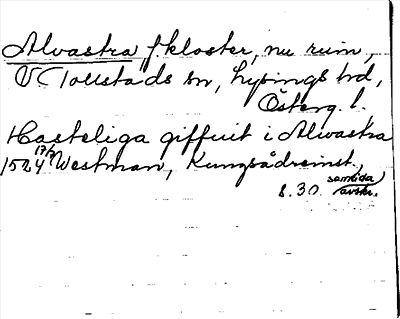 Alvastra f kloster, nu ruin,
V Tollstads sn, Lysings hd,
Österg. l.
Hasteliga giffuit i Alwastra
1524 17/7 Westman, Kungsådreinst.,
s. 30. samtida
avskr.